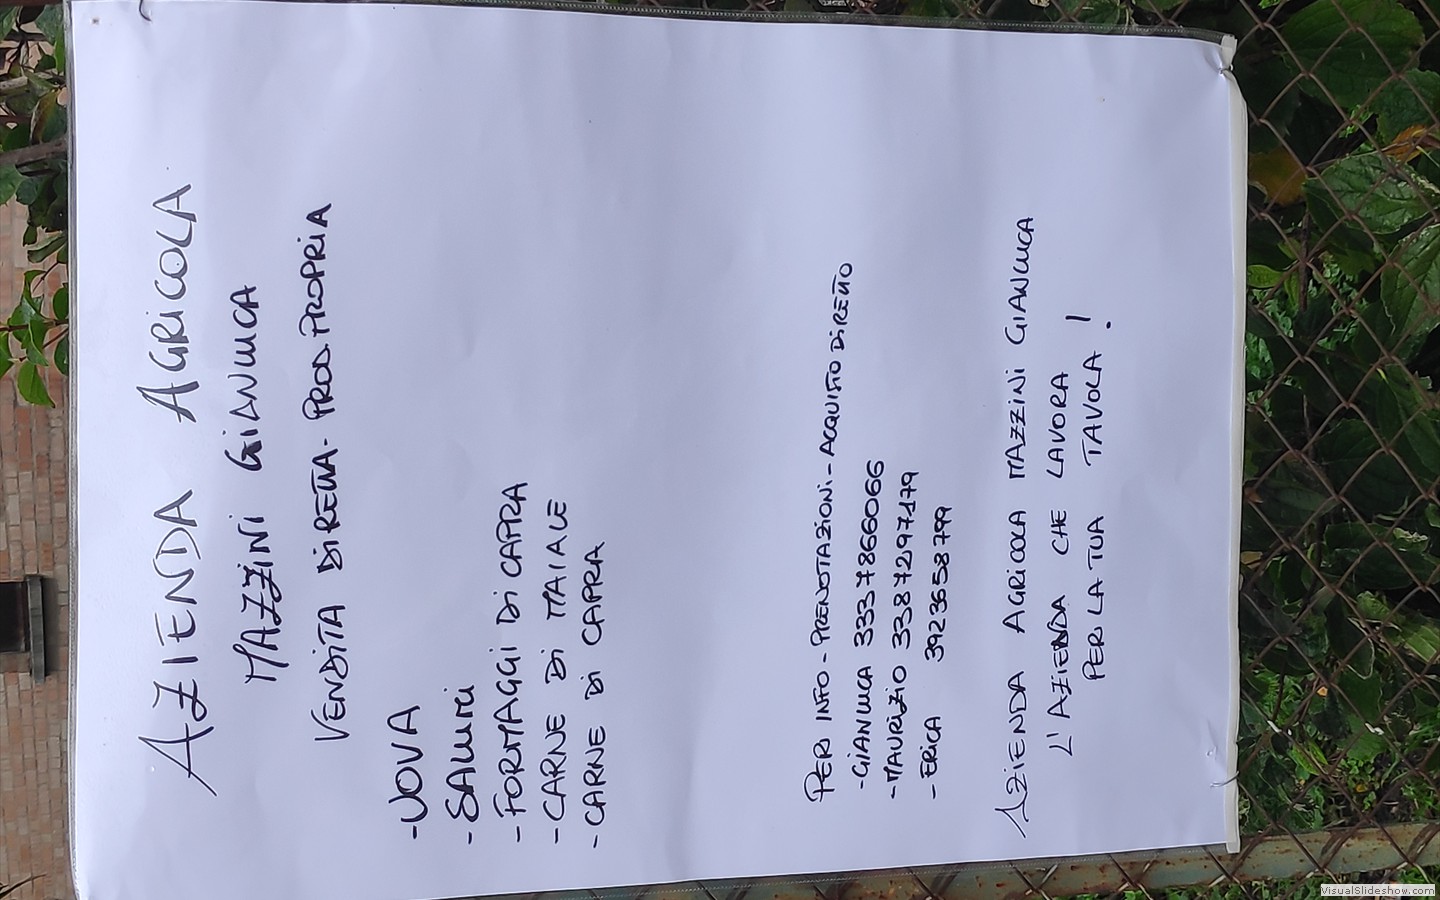 AZIENDA AGRICOLA
MAZZINI GIANLUCA
VENDITA DIRETTA - PROD. PROPRIA
- UOVA
- SALUMI
- FORMAGGI DI CAPRA
- CARNE DI MAIALE
- CARNE DI CAPRA
PER INFO - PRENOTAZIONI - ACQUISTO DIRETTO
- GIANLUCA 3337866066
- MAURIZIO 3387297179
- ERICA 3923658799
AZIENDA AGRICOLA MAZZINI GIANLUCA
L'AZIENDA CHE LAVORA
PER LA TUA TAVOLA!
VisualSlideshow.com